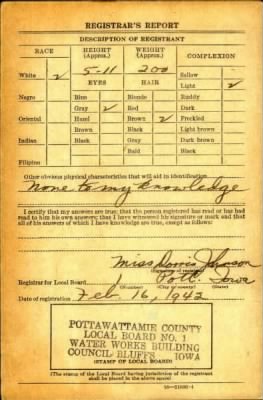 REGISTRAR'S REPORT
DESCRIPTION OF REGISTRANT
RACE HEIGHT (Approx.) WEIGHT (Approx.) COMPLEXION
White 5-11 200 Sallow
EYES HAIR Light
Negro Blue Blonde Ruddy
Gray Red Dark
Oriental Hazel Brown Freckled
Brown Black Light brown
Indian Black Gray Dark brown
Bald Black
Filipino
Other obvious physical characteristics that will aid in identification
None to my knowledge
I certify that my answers are true; that the person registered has read or has had
read to him his own answers; that I have witnessed his signature or mark and that
all of his answers of which I have knowledge are true, except as follows:
Miss Doris Johnson
(Signature of registrar)
Registrar for Local Board 1 Pott. Iowa
(Number) (City or county) (State)
Date of registration Feb 16, 1942
POTTAWATTAMIE COUNTY
LOCAL BOARD NO. 1
WATER WORKS BUILDING
COUNCIL BLUFFS IOWA
(STAMP OF LOCAL BOARD)
(The stamp of the Local Board having jurisdiction of the registrant
shall be placed in the above space.)